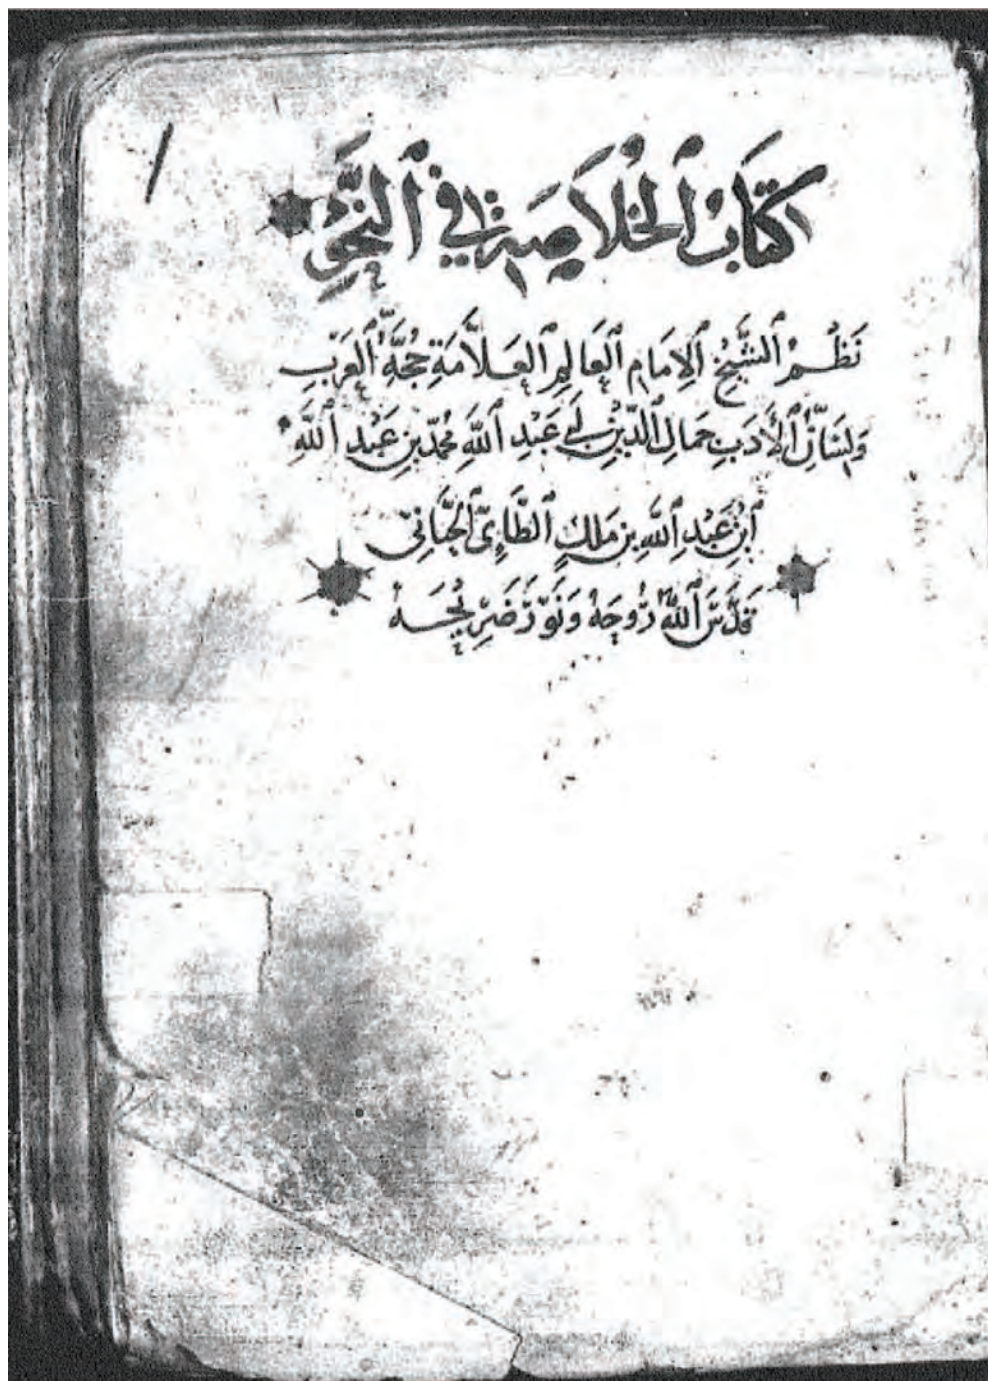 كتابُ الخُلاَصَةِ في النَّحْوِ
نَظْمُ الشَّيْخِ الإِمَامِ العَالِمِ العَلاَّمَةِ حُجَّةِ العَرَبِ
وَلِسَانِ الأَدَبِ جَمَالِ الدِّيْنِ أَبِي عَبْدِ اللَّهِ مُحمَّدِ بنِ عَبْدِ اللَّهِ
ابْنِ عَبْدِ اللَّهِ بنِ مَلكٍ الطَّائِيِّ الجَيَّانِيّ
قَدَّسَ اللَّهُ رُوحَهُ وَنَوَّرَ ضَرِيْحَهُ